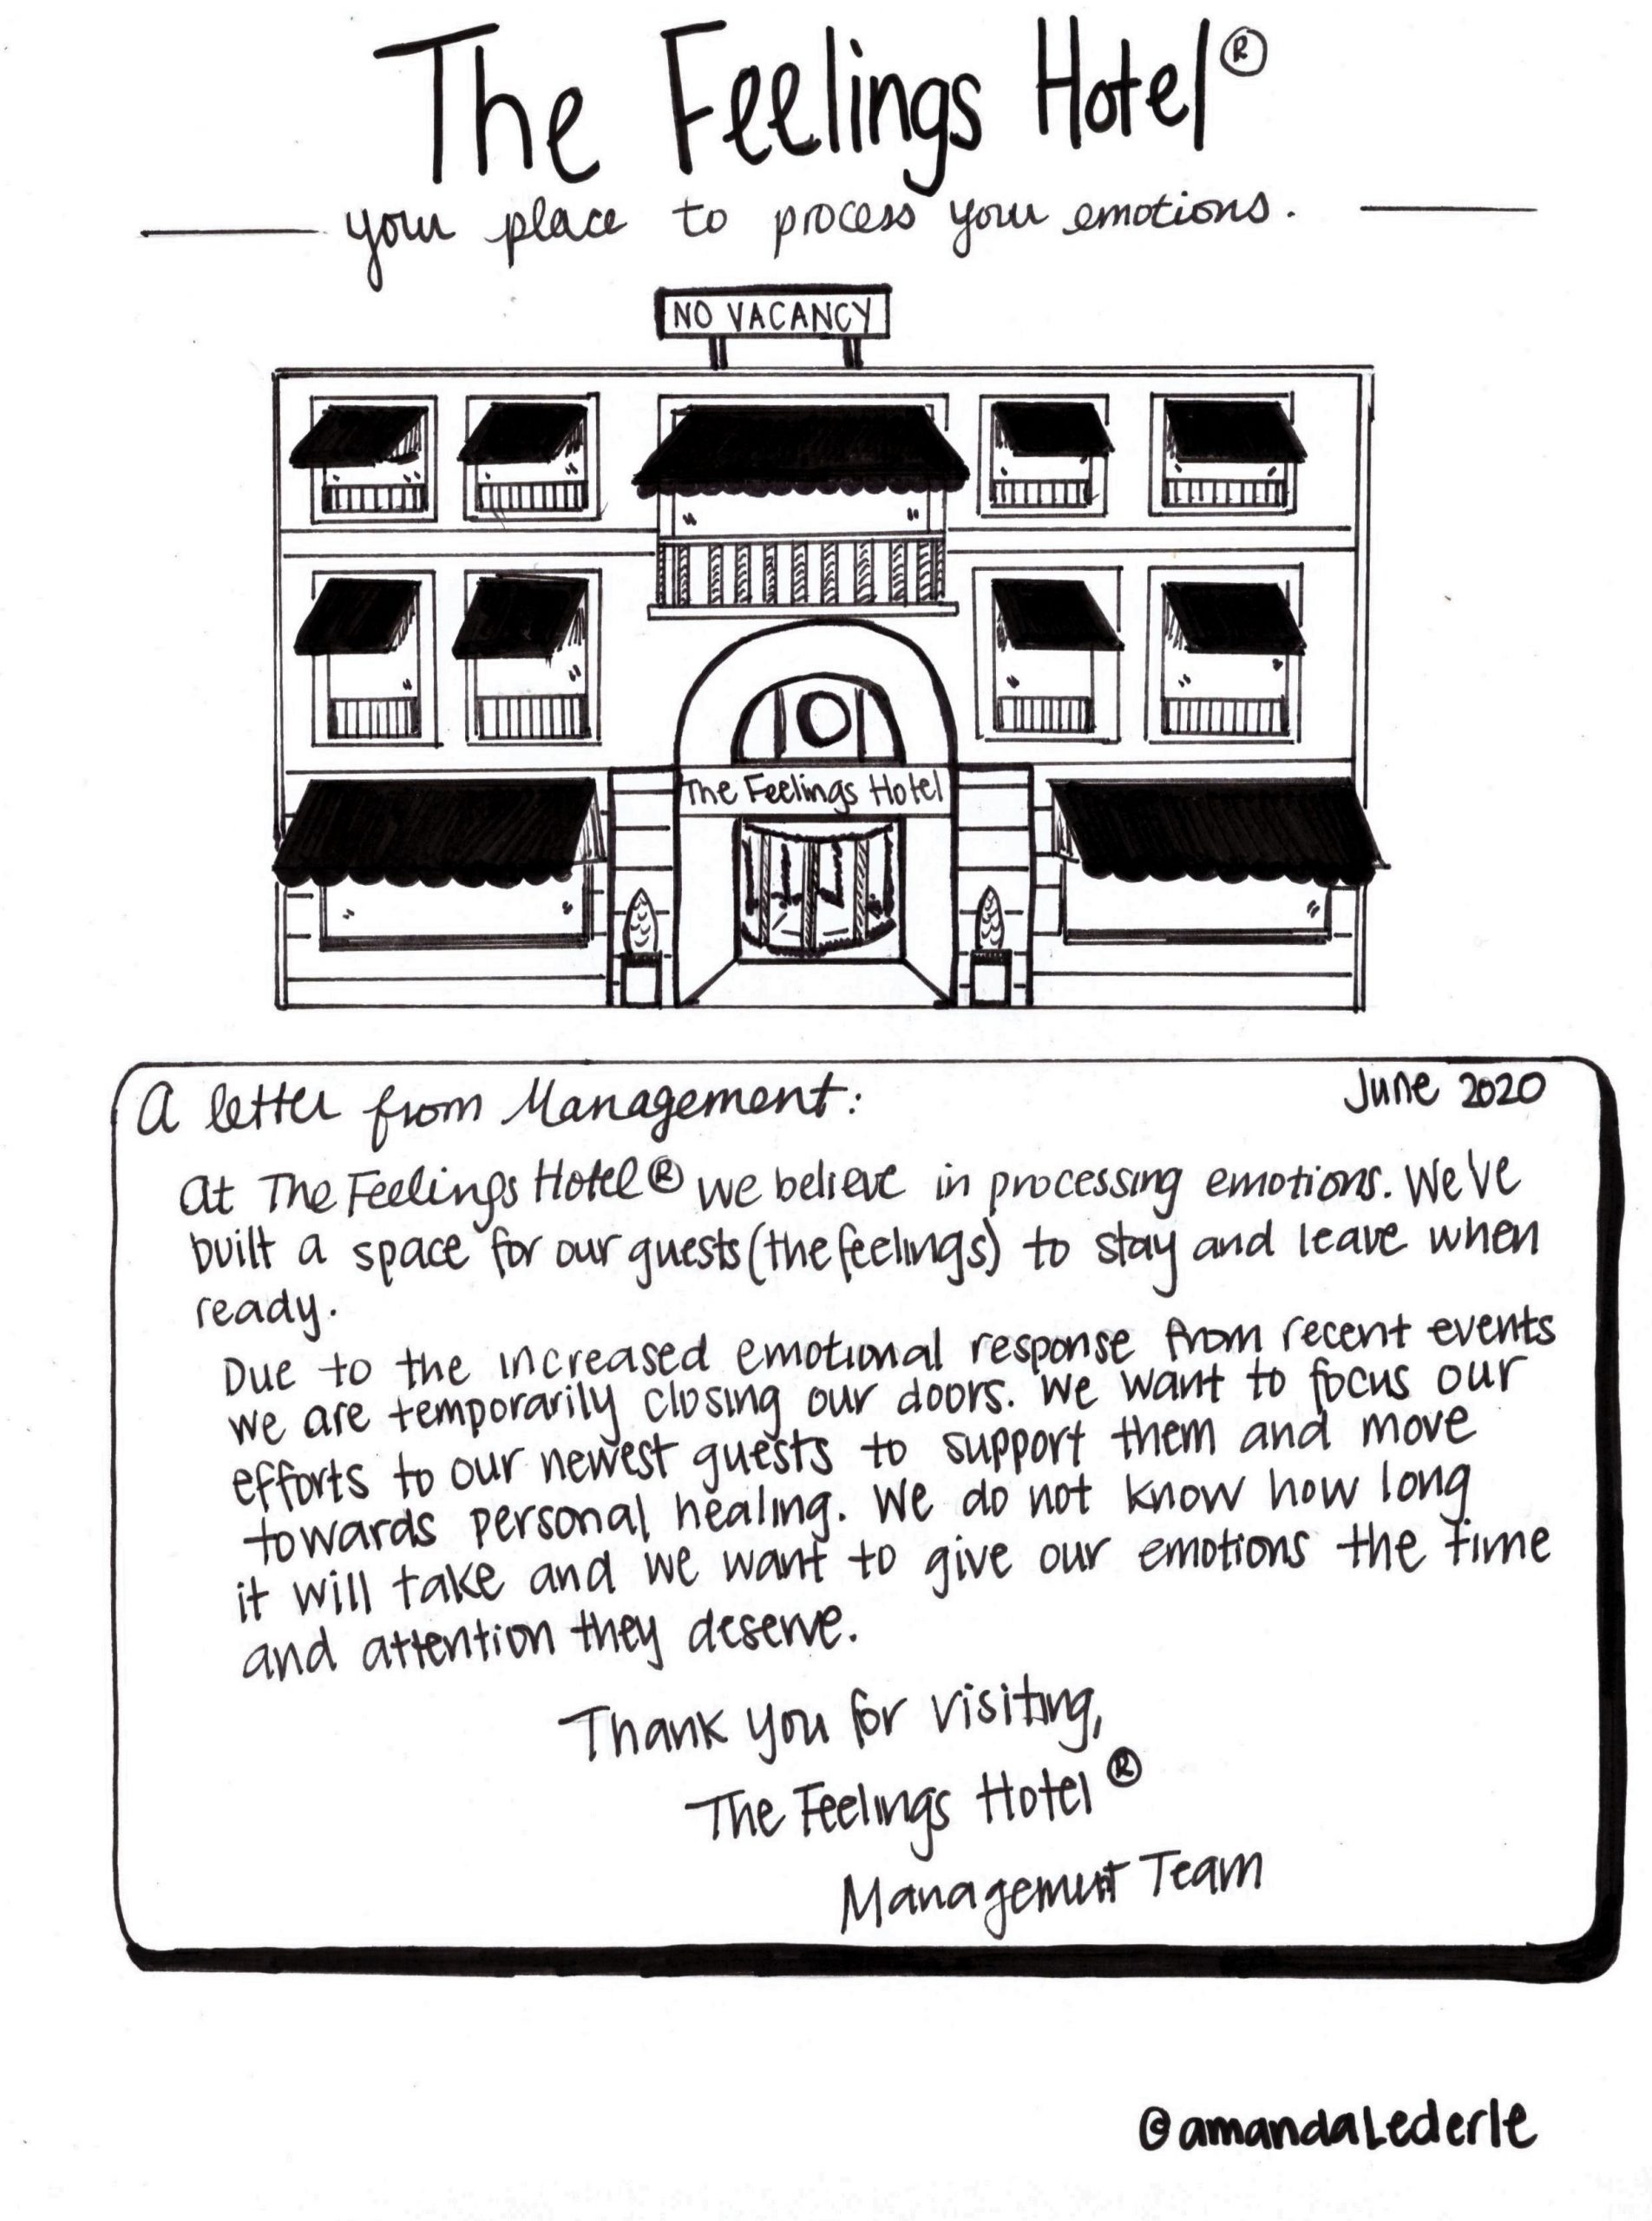 The Feelings Hotel®
your place to process your emotions.
NO VACANCY
The Feelings Hotel
A letter from Management:
June 2020
At The Feelings Hotel® we believe in processing emotions. We've
built a space for our guests (the feelings) to stay and leave when
ready.
Due to the increased emotional response from recent events
we are temporarily closing our doors. We want to focus our
efforts to our newest guests to support them and move
towards personal healing. We do not know how long
it will take and we want to give our emotions the time
and attention they deserve.
Thank you for visiting,
The Feelings Hotel®
Management Team
@amandaLederle